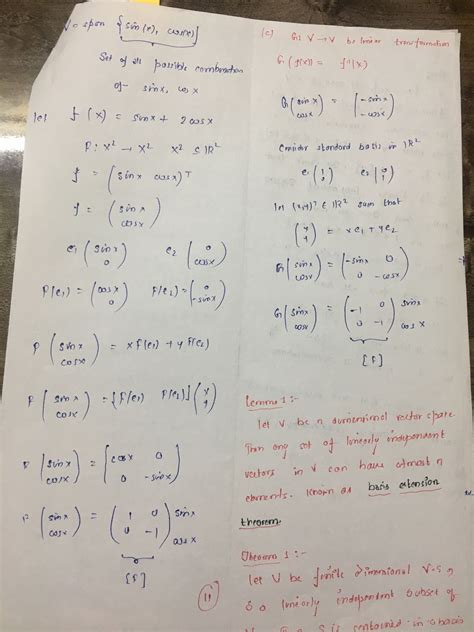 V = span {sin(x), cos(x)}
Set of all possible combination
of sinx, cos x
let f(x) = sinx + 2 cosx
X² → X² X² ⊆ ℝ²
f = (sinx cosx)ᵀ
f = (sinx
cosx)
e₁ (sinx
0) e₂ (0
cosx)
F(e₁) = (cosx
0) F(e₂) = (0
-sinx)
(sinx
cosx) = xF(e₁) + yF(e₂)
F (sinx
cosx) = [F(e₁) F(e₂)] (x
y)
F (sinx
cosx) = [cosx 0
0 -sinx]
F (sinx
cosx) = (1 0
0 -1) sinx
cosx
[F]
(c) G: V → V be linear transformation
G(f(x)) = f"(x)
G (sinx
cosx) = (-sinx
-cosx)
Consider standard basis in ℝ²
e₁ (1
0) e₂ (0
1)
let (x,y)ᵀ ∈ ℝ² such that
(x
y) = xe₁ + ye₂
G (sinx
cosx) = (-sinx 0
0 -cosx)
G (sinx
cosx) = (-1 0
0 -1) sinx
cosx
[F]
Lemma 1 :-
let V be n dimensional vector space
Then any set of linearly independent
vectors in V can have atmost n
elements. Known as basis extension
theorem.
Theorem 1 :-
let V be finite dimensional V.S n
S a linearly independent subset of
S is contained in a basis